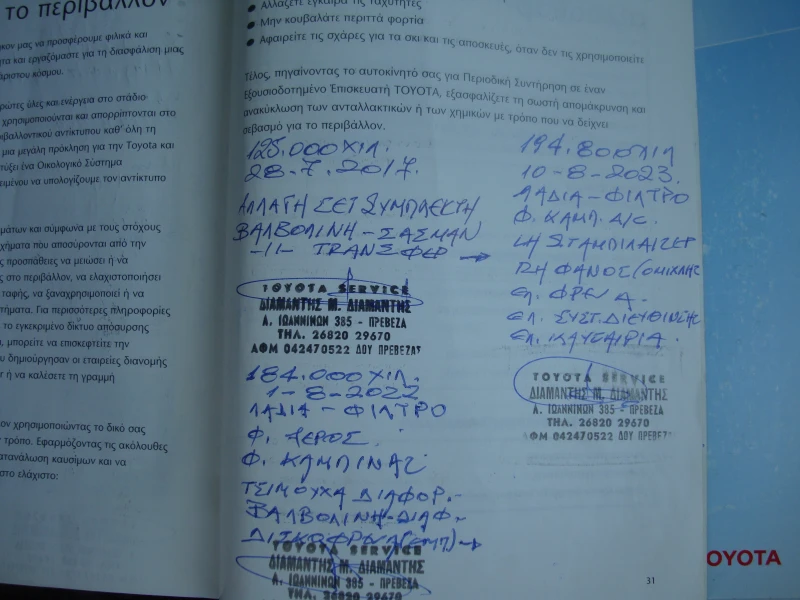 το περιβάλλον
μας να προσφέρουμε φιλικά και
και εργαζόμαστε για τη διασφάλιση μιας
άριστου κόσμου.
πρώτες ύλες και ενέργεια στο στάδιο
χρησιμοποιούνται και απορρίπτονται στο
περιβαλλοντικού αντίκτυπου καθ' όλη τη
μια μεγάλη πρόκληση για την Toyota και
ένα Οικολογικό Σύστημα
προκειμένου να υπολογίσουμε τον αντίκτυπο
και σύμφωνα με τους στόχους
οχήματα που αποσύρονται από την
προσπάθειες να μειώσει ή να
στο περιβάλλον, να ελαχιστοποιήσει
ταφής, να ξαναχρησιμοποιεί ή να
Για περισσότερες πληροφορίες
το εγκεκριμένο δίκτυο απόσυρσης
μπορείτε να επισκεφτείτε την
δημιούργησαν οι εταιρείες διανομής
ή να καλέσετε τη γραμμή
χρησιμοποιώντας το δικό σας
τρόπο. Εφαρμόζοντας τις ακόλουθες
κατανάλωση καυσίμων και να
στο ελάχιστο:
• Αλλάζετε έγκαιρα τις ταχύτητες
• Μην κουβαλάτε περιττά φορτία
• Αφαιρείτε τις σχάρες για τα σκι και τις αποσκευές, όταν δεν τις χρησιμοποιείτε
Τέλος, πηγαίνοντας το αυτοκίνητό σας για Περιοδική Συντήρηση σε έναν
Εξουσιοδοτημένο Επισκευατή TOYOTA, εξασφαλίζετε τη σωστή απομάκρυνση και
ανακύκλωση των ανταλλακτικών ή των χημικών με τρόπο που να δείχνει
σεβασμό για το περιβάλλον.
125.000 ΧΙΛ.
28-7.2017.
ΑΛΛΑΓΗ ΣΕΤ ΣΥΜΠΛΕΚΤΗ
ΒΑΛΒΟΛΙΝΗ-ΣΑΣΜΑΝ
-11- ΤΡΑΝΣΦΕΡ →
TOYOTA SERVICE
ΔΙΑΜΑΝΤΗΣ Μ. ΔΙΑΜΑΝΤΗΣ
Λ. ΙΩΑΝΝΙΝΩΝ 385 - ΠΡΕΒΕΖΑ
ΤΗΛ. 26820 29670
ΑΦΜ 042470522 ΔΟΥ ΠΡΕΒΕΖΑΣ
184.000 ΧΙΛ.
1-8-2022
ΛΑΔΙΑ-ΦΙΛΤΡΟ
Φ. ΑΕΡΟΣ.
Φ. ΚΑΜΠΙΝΑΣ
ΤΣΙΜΟΥΧΑ ΔΙΑΦΟΡ.-
ΒΑΛΒΟΛΙΝΗ-ΔΙΑΦ-
ΔΙΣΚΟΦΡΕΝΑ(ΕΜΠ)→
TOYOTA SERVICE
ΔΙΑΜΑΝΤΗΣ Μ. ΔΙΑΜΑΝΤΗΣ
Λ. ΙΩΑΝΝΙΝΩΝ 385 - ΠΡΕΒΕΖΑ
ΤΗΛ. 26820 29670
194.800 ΧΙΛ
10-8-2023.
ΛΑΔΙΑ-ΦΙΛΤΡΟ
Φ. ΚΑΜΠ. A/C.
ΣΤΑΜΠΙΛΑΙΖΕΡ
ΦΑΝΟΣ(ΟΜΙΧΛΗΣ
ΕΛ. ΦΡΕΝΑ.
ΕΛ. ΣΥΣΤ. ΔΙΕΥΘΙΝΣΗΣ
ΕΛ. ΚΑΥΣΑΕΡΙΑ.
TOYOTA SERVICE
ΔΙΑΜΑΝΤΗΣ Μ. ΔΙΑΜΑΝΤΗΣ
Λ. ΙΩΑΝΝΙΝΩΝ 385 - ΠΡΕΒΕΖΑ
ΤΗΛ. 26820 29670
ΑΦΜ 042470522 ΔΟΥ ΠΡΕΒΕΖΑΣ
31
TOYOTA